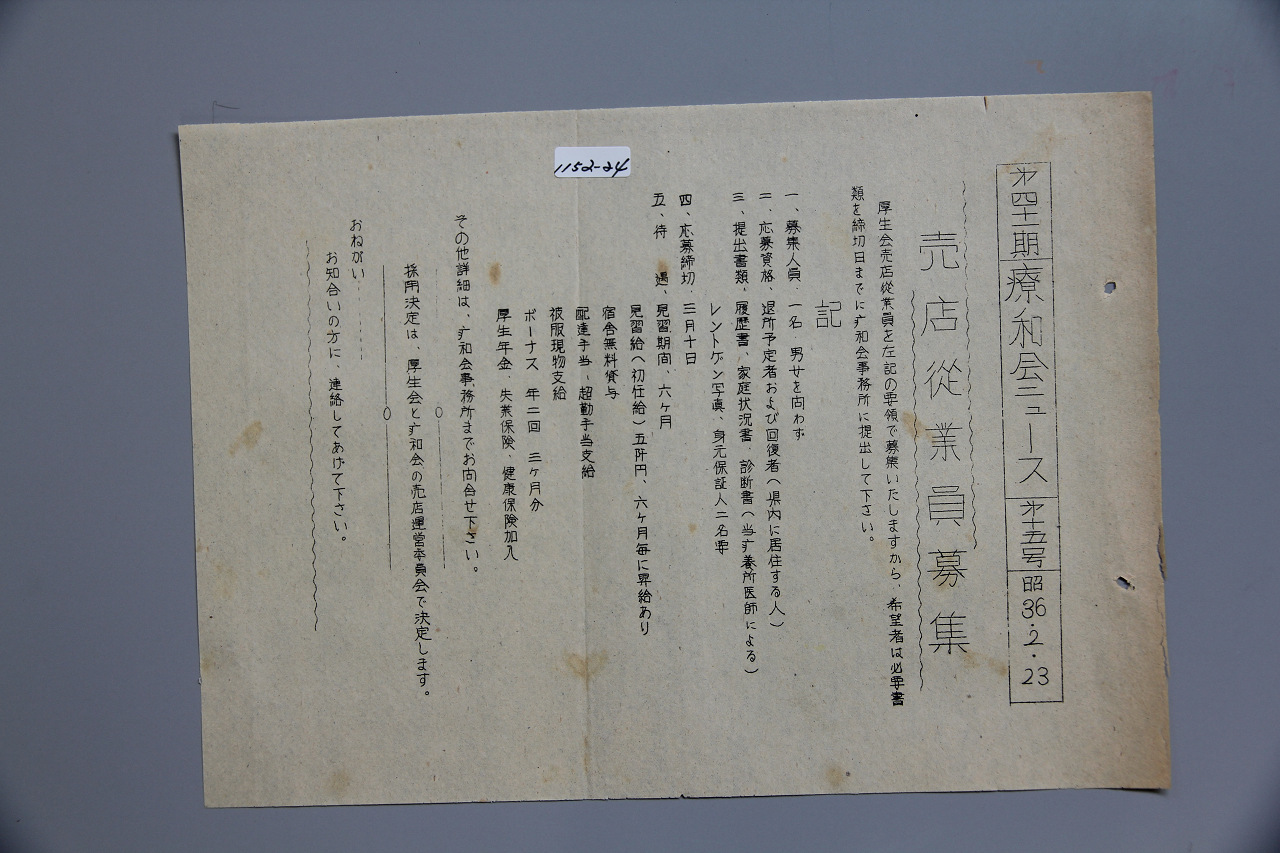 1152-24
㐧四十一期 療和会ニュース 㐧十五号 昭36.2.23
売店従業員募集
厚生会売店従業員を左記の要領で募集いたしますから、希望者は必要書
類を締切日までに疒和会事務所に提出して下さい。
記
一、募集人員、一名 男女を向わず
二、応募資格、退所予定者および回復者(県内に居住する人)
三、提出書類、履歴書、家庭状況書、診断書(当疒養所医師による)
レントゲン写真、身元保証人二名要
四、応募締切、三月十日
五、待遇、見習期間、六ヶ月
見習給(初任給)五阡円、六ヶ月毎に昇給あり
宿舎無料貸与
配達手当、超勤手当支給
被服現物支給
ボーナス 年二回 三ヶ月分
厚生年金、失業保険、健康保険加入
その他詳細は、疒和会事務所までお向合せ下さい。
採用決定は、厚生会と疒和会の売店運営委員会で決定します。
おねがい……
お知合いの方に、連絡してあげて下さい。